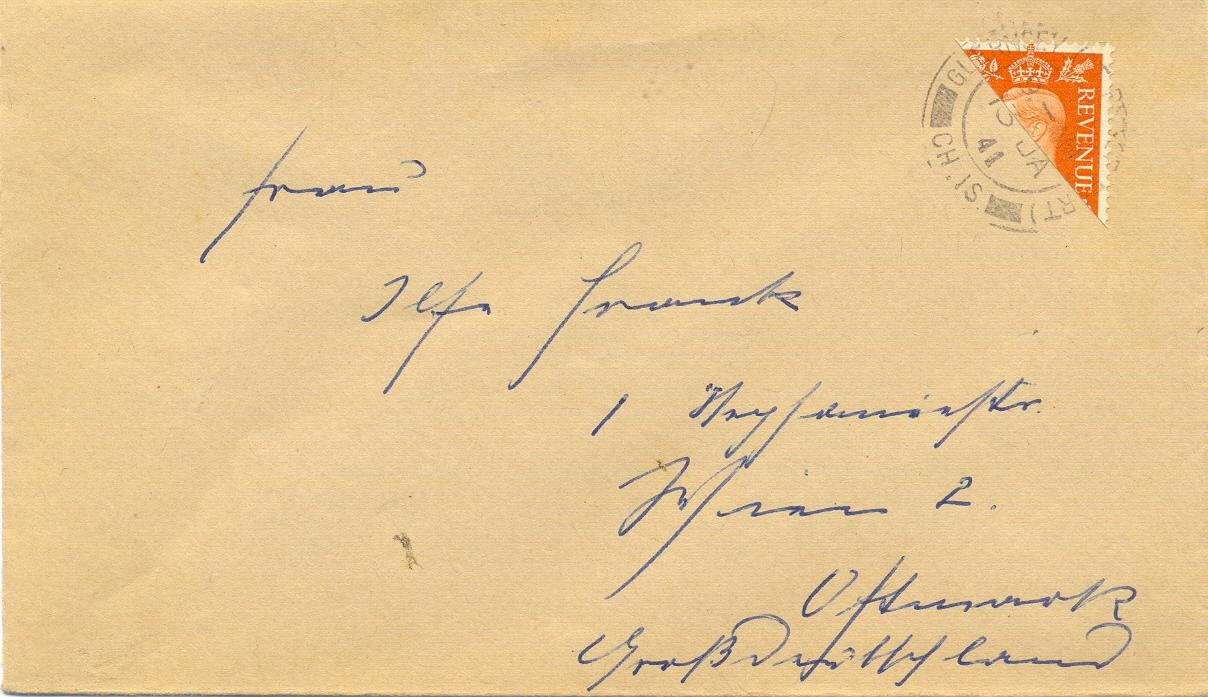 GUERNSEY
CH. IS.
13 JA
41
REVENUE
Frau
Ilse Franck
1
Wien 2.
Ostmark
Großdeutschland